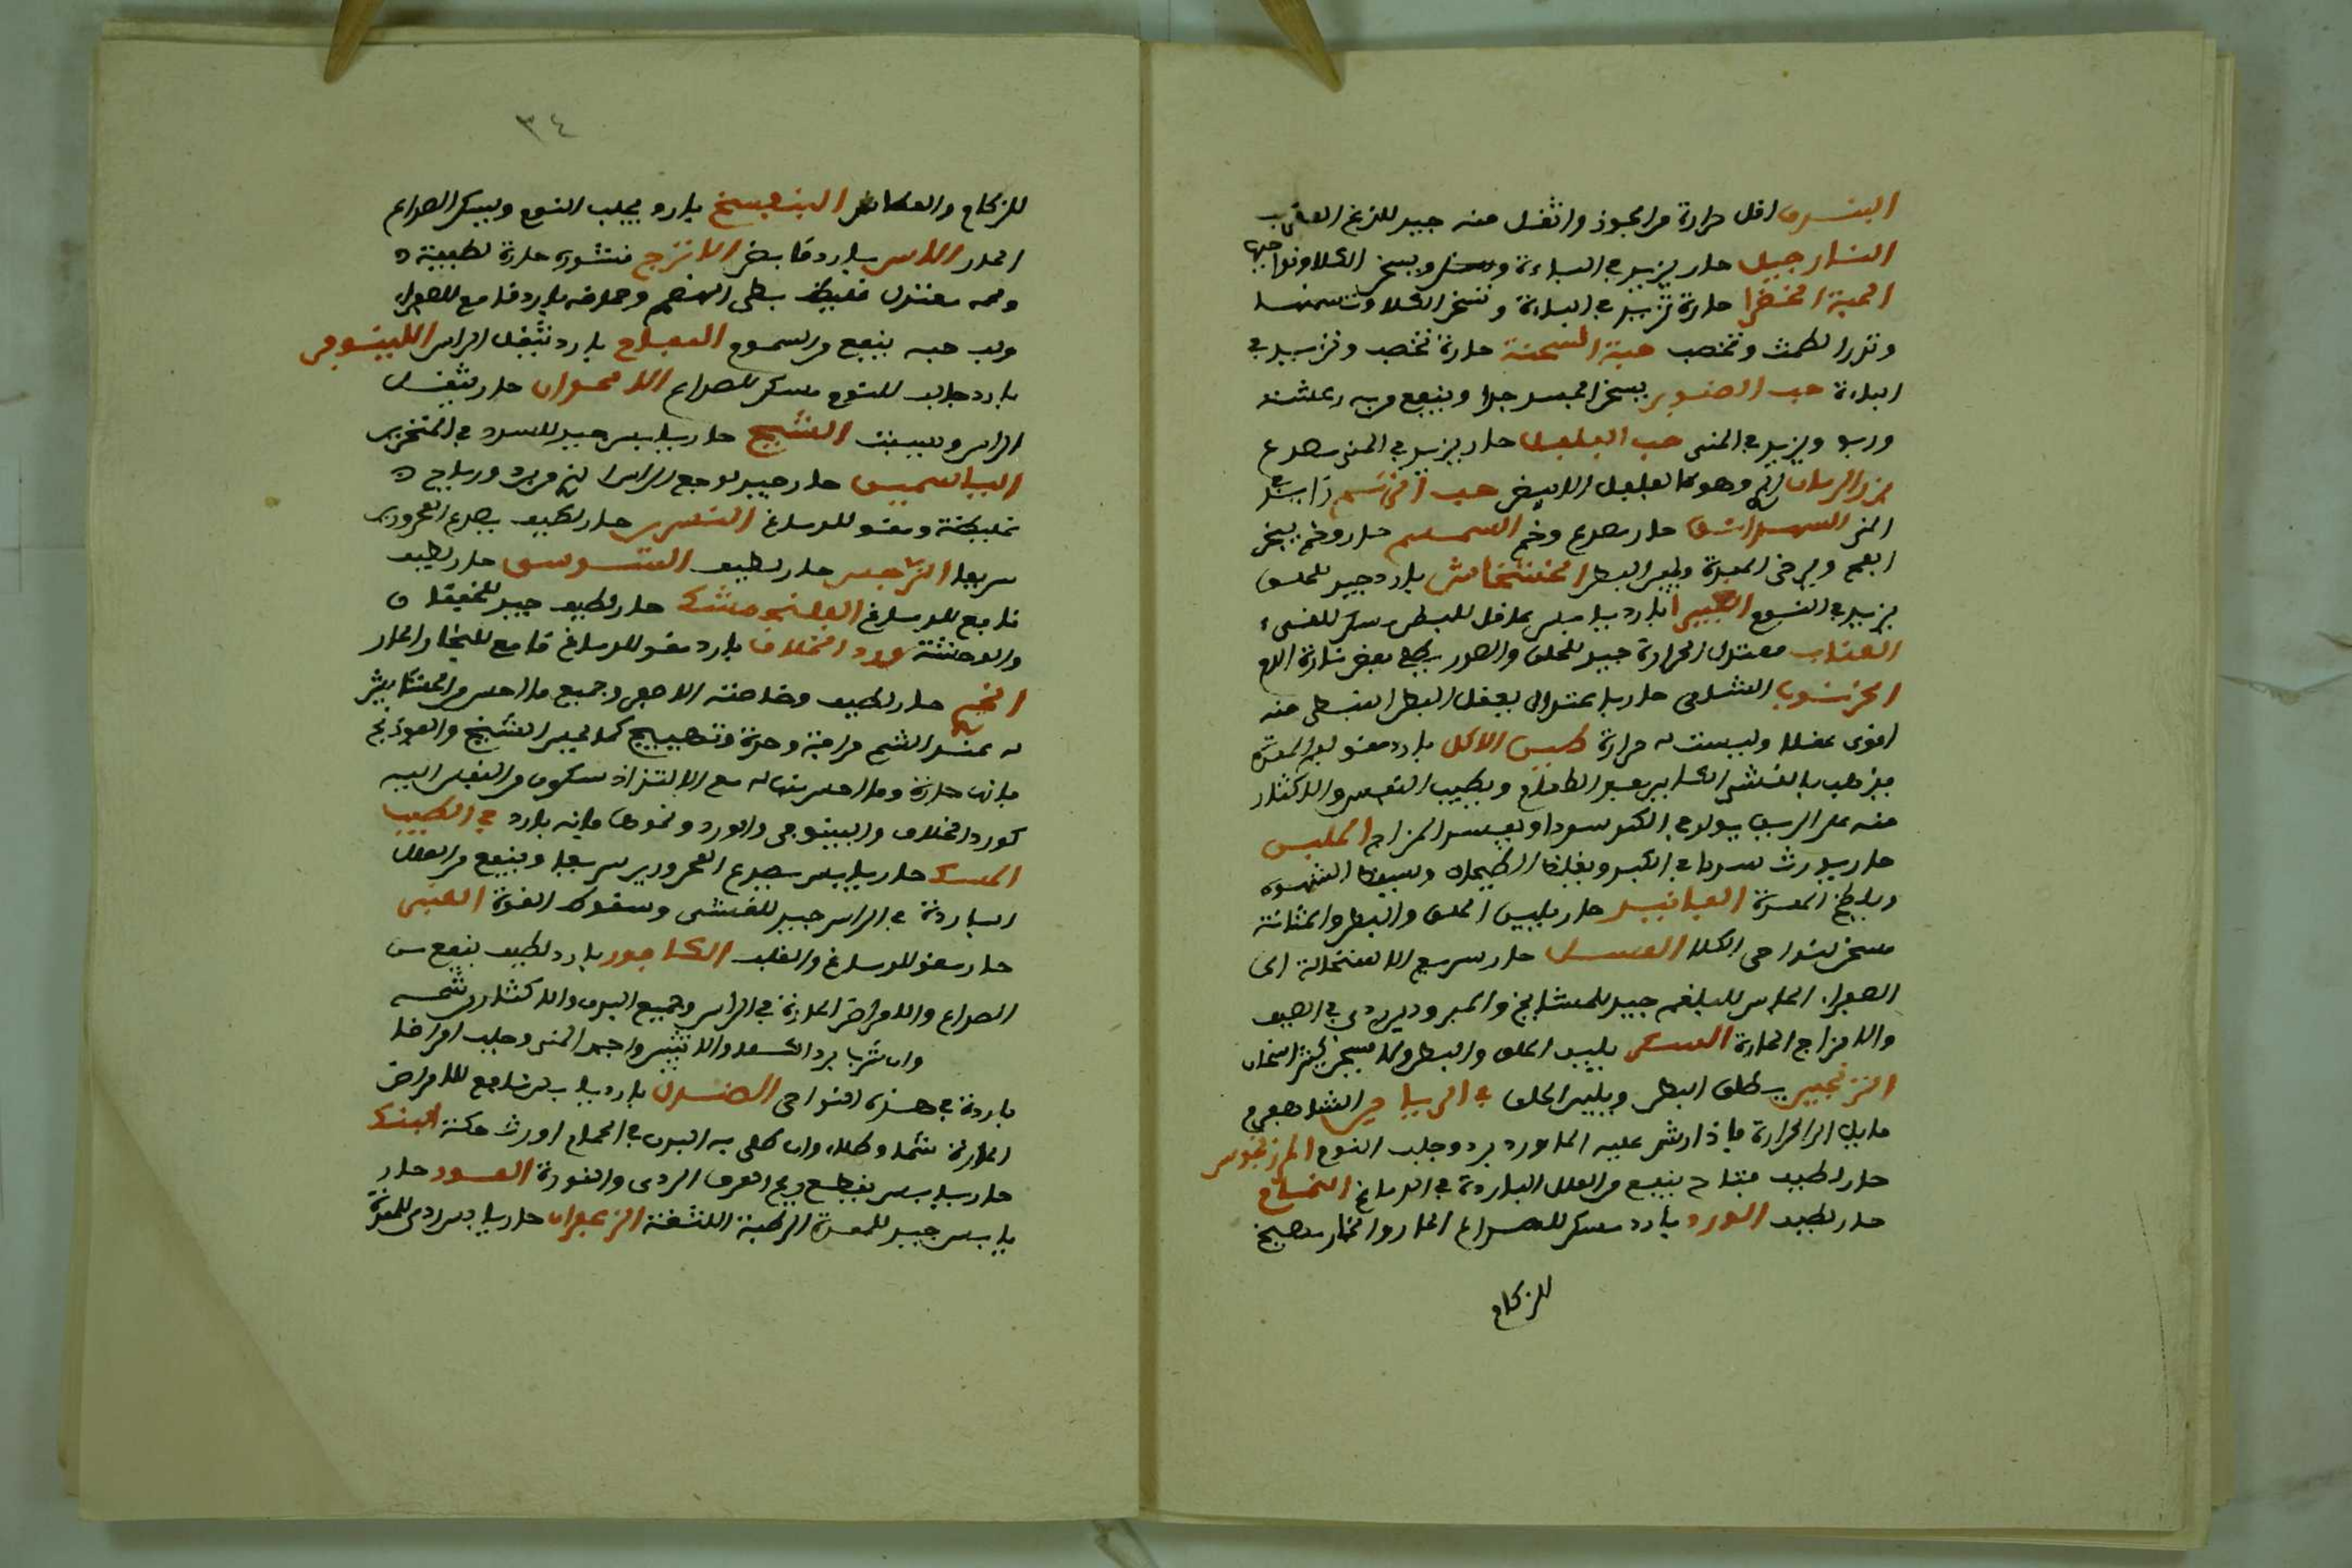 البندق اقل حرارة من الجوز واثقل منه جيد للدغ العقرب
النارجيل حار يزيد في الباءة ويسخن الكلا ونواحيها
الحبة الخضرا حارة تزيد في الباءة وتسخن الكلا وتسمنها
وتدر الطمث وتخصب حبة السمنة حارة تخصب وتزيد في
الباءة حب الصنوبر يسخن الجسد جدا وينفع من به رعشة
وربو ويزيد في المنى حب الفلفل حار يزيد في المنى يصدع
بزر الرمان البري وهو كالفلفل الابيض حب الزلم زايد في
المنى الشهدانق حار يصدع وخم السمسم حار وخم يبخر
الفم ويرخي المعدة ويلين البطن الخشخاش بارد جيد للحلق
يزيد في النوم الغبيرا بارد يابس عاقل للبطن مسكن للقىء
العناب معتدل الحرارة جيد للحلق والصدر يطفي بعض نارة الدم
الخرنوب الشامي حار باعتدال يعقل البطن النبطي منه
اقوى عقلا وليست له حرارة طين الاكل بارد مقو لفم المعدة
يذهب بالغشي الكاين بعد الطعام ويطيب النفس والاكثار
منه على الريق يولد في الكبد سددا ويفسد المزاج الملبس
حار يورث سددا في الكبد ويغلظ الطحال ويسقط الشهوة
ويلطخ المعدة الفانيد حار يلين الحلق والبطن والمثانة
مسخن لنواحي الكلا العسل حار سريع الاستحالة الى
الصفراء الحلو للبلغم جيد للمشايخ والمبرودين ردي في الصيف
والامزاج الحارة السكر يلين الحلق والبطن ولا يسخن كثير اسخان
الترنجبين يطلق البطن ويلين الحلق في الرياحين الشاهسفرم
مايل الى الحرارة فاذا رش عليه الماورد برد وجلب النوم المرزنجوش
حار لطيف فتاح ينفع من العلل الباردة في الدماغ النمام
حار لطيف الورد بارد مسكن للصداع الحار والخمار مهيج
للزكام
٣٤
للزكام والعطاس البنفسج بارد يجلب النوم ويسكن الصداع
الحار الاس بارد قابض الاترج قشوره حارة لطيفة
ولحمه معتدل غليظ بطي الهضم وحماضه بارد قامع للصفرا
ولب حبه ينفع من السموم اللفاح بارد يثقل الراس اللينوفر
بارد جالب للنوم مسكن للصداع الاقحوان حار يثقل
الراس ويسبت الشيح حار يابس جيد للسدد في المنخرين
الياسمين حار جيد لوجع الراس الذي من برد ورياح
غليظة ومقو للدماغ النسرين حار لطيف يصدع المحرورين
سريعا النرجس حار لطيف السوسن حار لطيف
نافع للدماغ الفلنجمشك حار لطيف جيد للخفقان
والوحشة ورد الخلاف بارد مقو للدماغ قامع للبخار الحار
الخيري حار لطيف وخاصته الاصفر وجميع ما احس من الحشايش
له عند الشم حرافة وحدة وتهييج كما لحس الشيح والفوذنج
فانه حارة وما احس منها له مع الالتذاذ سكون من النفس اليه
كورد الخلاف والنينوفر والورد ونحوها فانه بارد في الطيب
المسك حار يابس يصدع المحرورين سريعا وينفع من العلل
الباردة في الراس جيد للغشي وسقوط القوة العنبر
حار مقو للدماغ والقلب الكافور بارد لطيف ينفع من
الصداع والامراض الحارة في الراس وجميع البدن والاكثار من شمه
وان شرب برد الكلا والانثيين واجمد المنى وجلب امراضا
باردة في هذه النواحي الصندل بارد يابس نافع للامراض
الحارة شما وطلاء وان طلي به البدن في الحمام اورث حكة البنك
حار يابس يقطع ريح العرق الردي والنورة العود حار
يابس جيد للمعدة الرطبة اللثقة الزعفران حار يابس ردي للمعدة